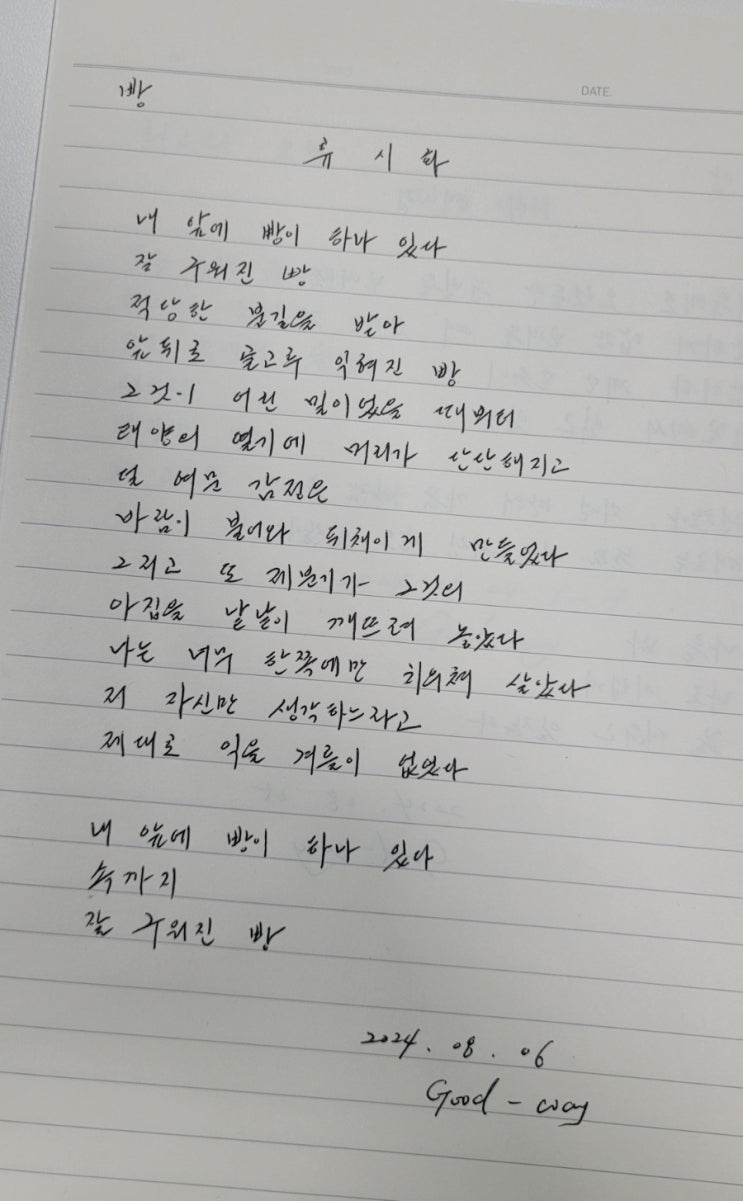 DATE.
빵
류 시 화
내 앞에 빵이 하나 있다
잘 구워진 빵
적당한 불길을 받아
앞뒤로 골고루 익혀진 빵
그것이 어린 밀이었을 때부터
태양의 열기에 머리가 단단해지고
덜 여문 감정은
바람이 불어와 뒤채이게 만들었다
그리고 또 제분기가 그것의
아집을 낱낱이 깨뜨려 놓았다
나는 너무 한쪽에만 치우쳐 살았다
저 자신만 생각하느라고
제대로 익을 겨를이 없었다
내 앞에 빵이 하나 있다
속까지
잘 구워진 빵
2024. 08. 06
Good - way